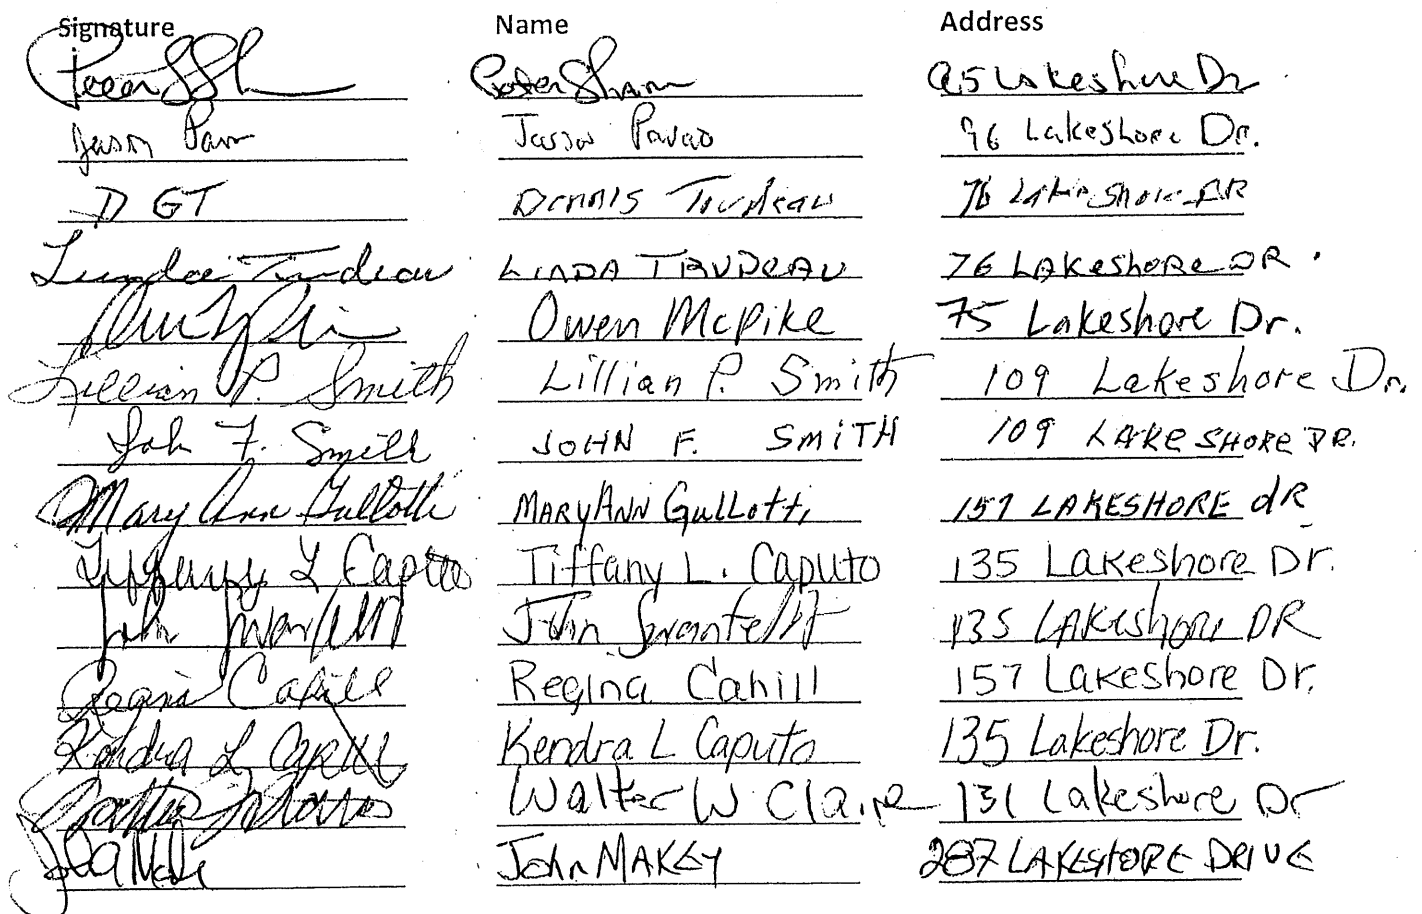 Signature Name Address
Peter Sham 95 Lakeshore Dr
Jason Pavao 96 Lakeshore Dr.
D GT Dennis Trudeau 76 Lakeshore DR
Linda Trudeau LINDA TRUDEAU 76 LAKeshoRe DR.
Owen McPike 75 Lakeshore Dr.
Lillian P. Smith Lillian P. Smith 109 Lakeshore Dr.
John F. Smith JOHN F. SMITH 109 LAKE SHORE DR.
Mary Ann Gullotti MARYANN GulLotti 157 LAKESHORE dR
Tiffany L Caputo Tiffany L. Caputo 135 Lakeshore Dr.
John John 135 LAKeshore DR
Regina Cahill Regina Cahill 157 Lakeshore Dr.
Kendra L Caputo Kendra L Caputo 135 Lakeshore Dr.
Walter W Claire 131 Lakeshore Dr
John MAKEY 287 LAKESHORE DRIVE